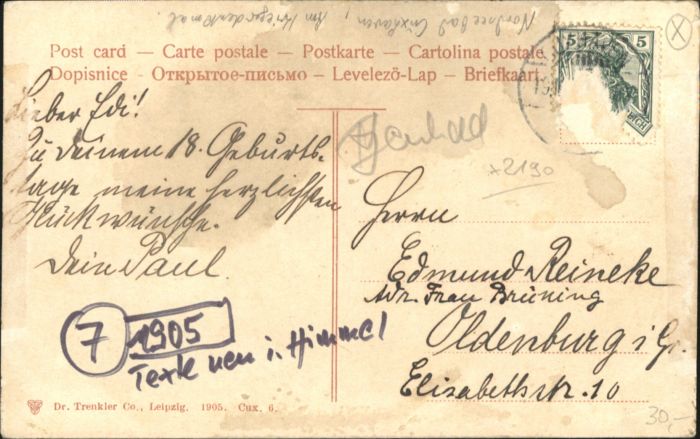 Nordseebad Cuxhaven, Am Kriegerdenkmal.
Post card — Carte postale — Postkarte — Cartolina postale
Dopisnice - Открытое-письмо - Levelező-Lap - Briefkaart
5
Lieber Edi!
Zu Deinem 18. Geburts-
tage meine herzlichsten
Glückwünsche.
Dein Paul.
x2190
Herrn
Edmund Reineke
Adr. Frau Brüning
Oldenburg i. Gr.
Elisabethstr. 10
7 1905
Texte neu i. Himmel
30,-
Dr. Trenkler Co., Leipzig. 1905. Cux. 6.